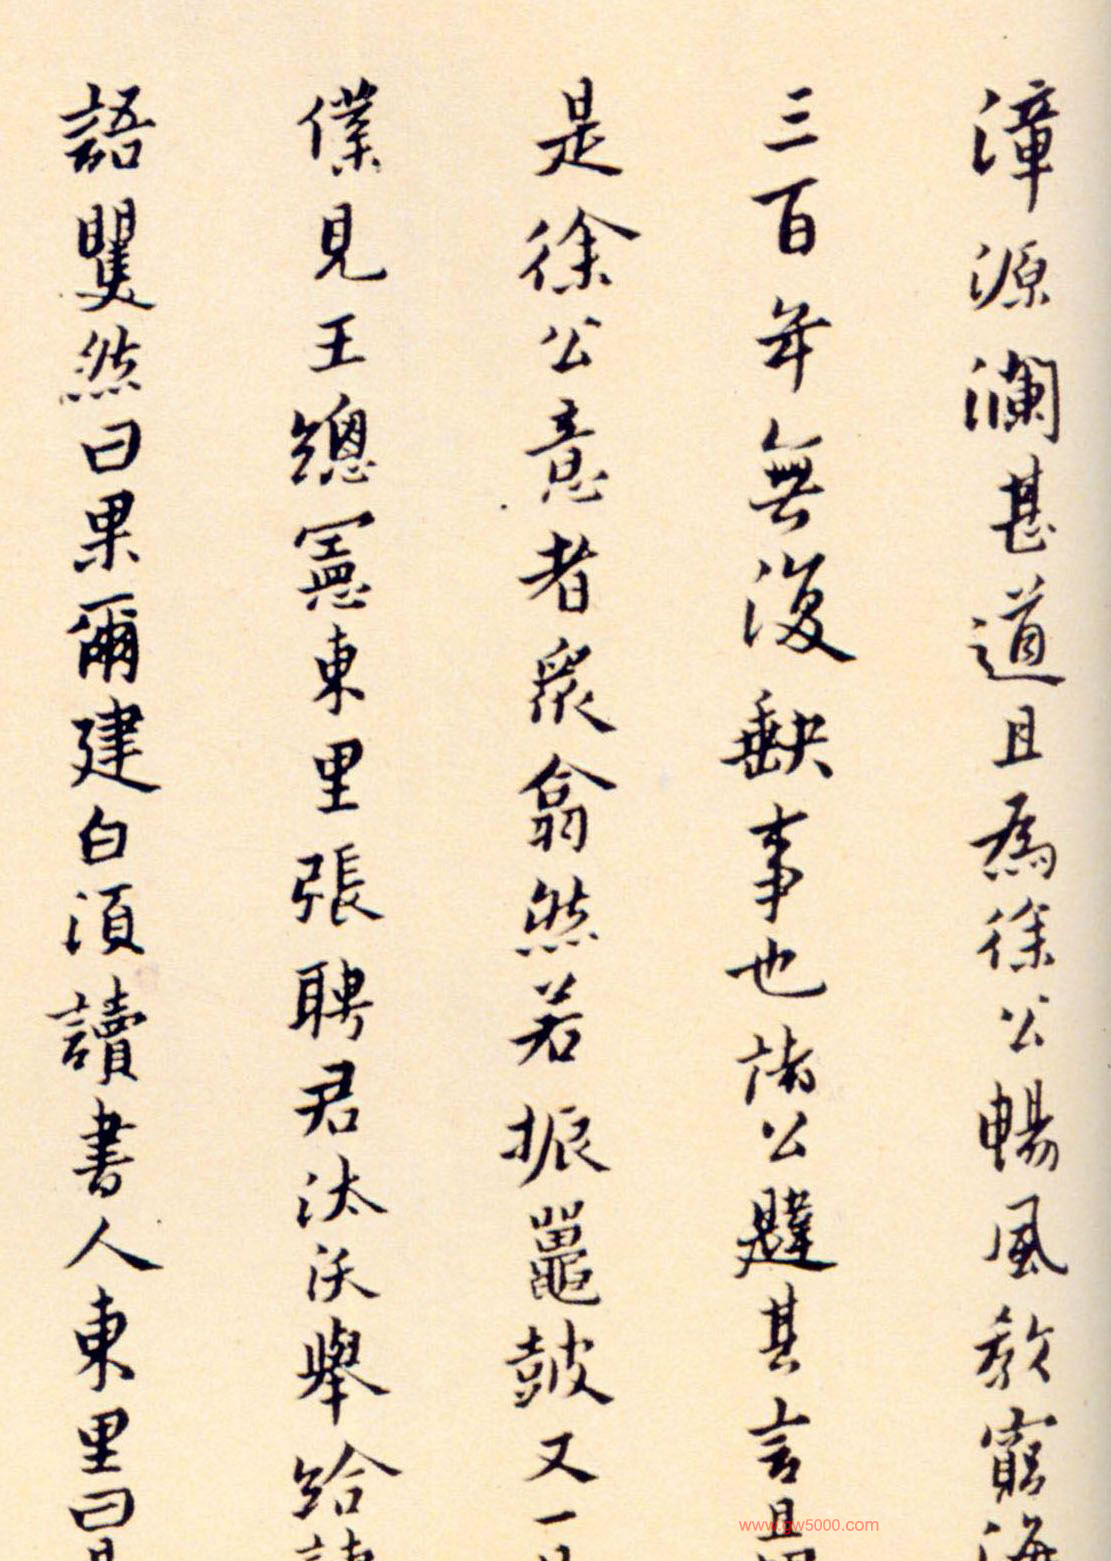 漳源瀾甚道且為徐公暢風教窮海
三百年無復缺事也諸公韙其言且
是徐公意者眾翕然若振鼉鼓又一
僕見王總憲東里張聘君汰沃舉給諫
語瞿然曰果爾建白須讀書人東里曰
www.gw5000.com